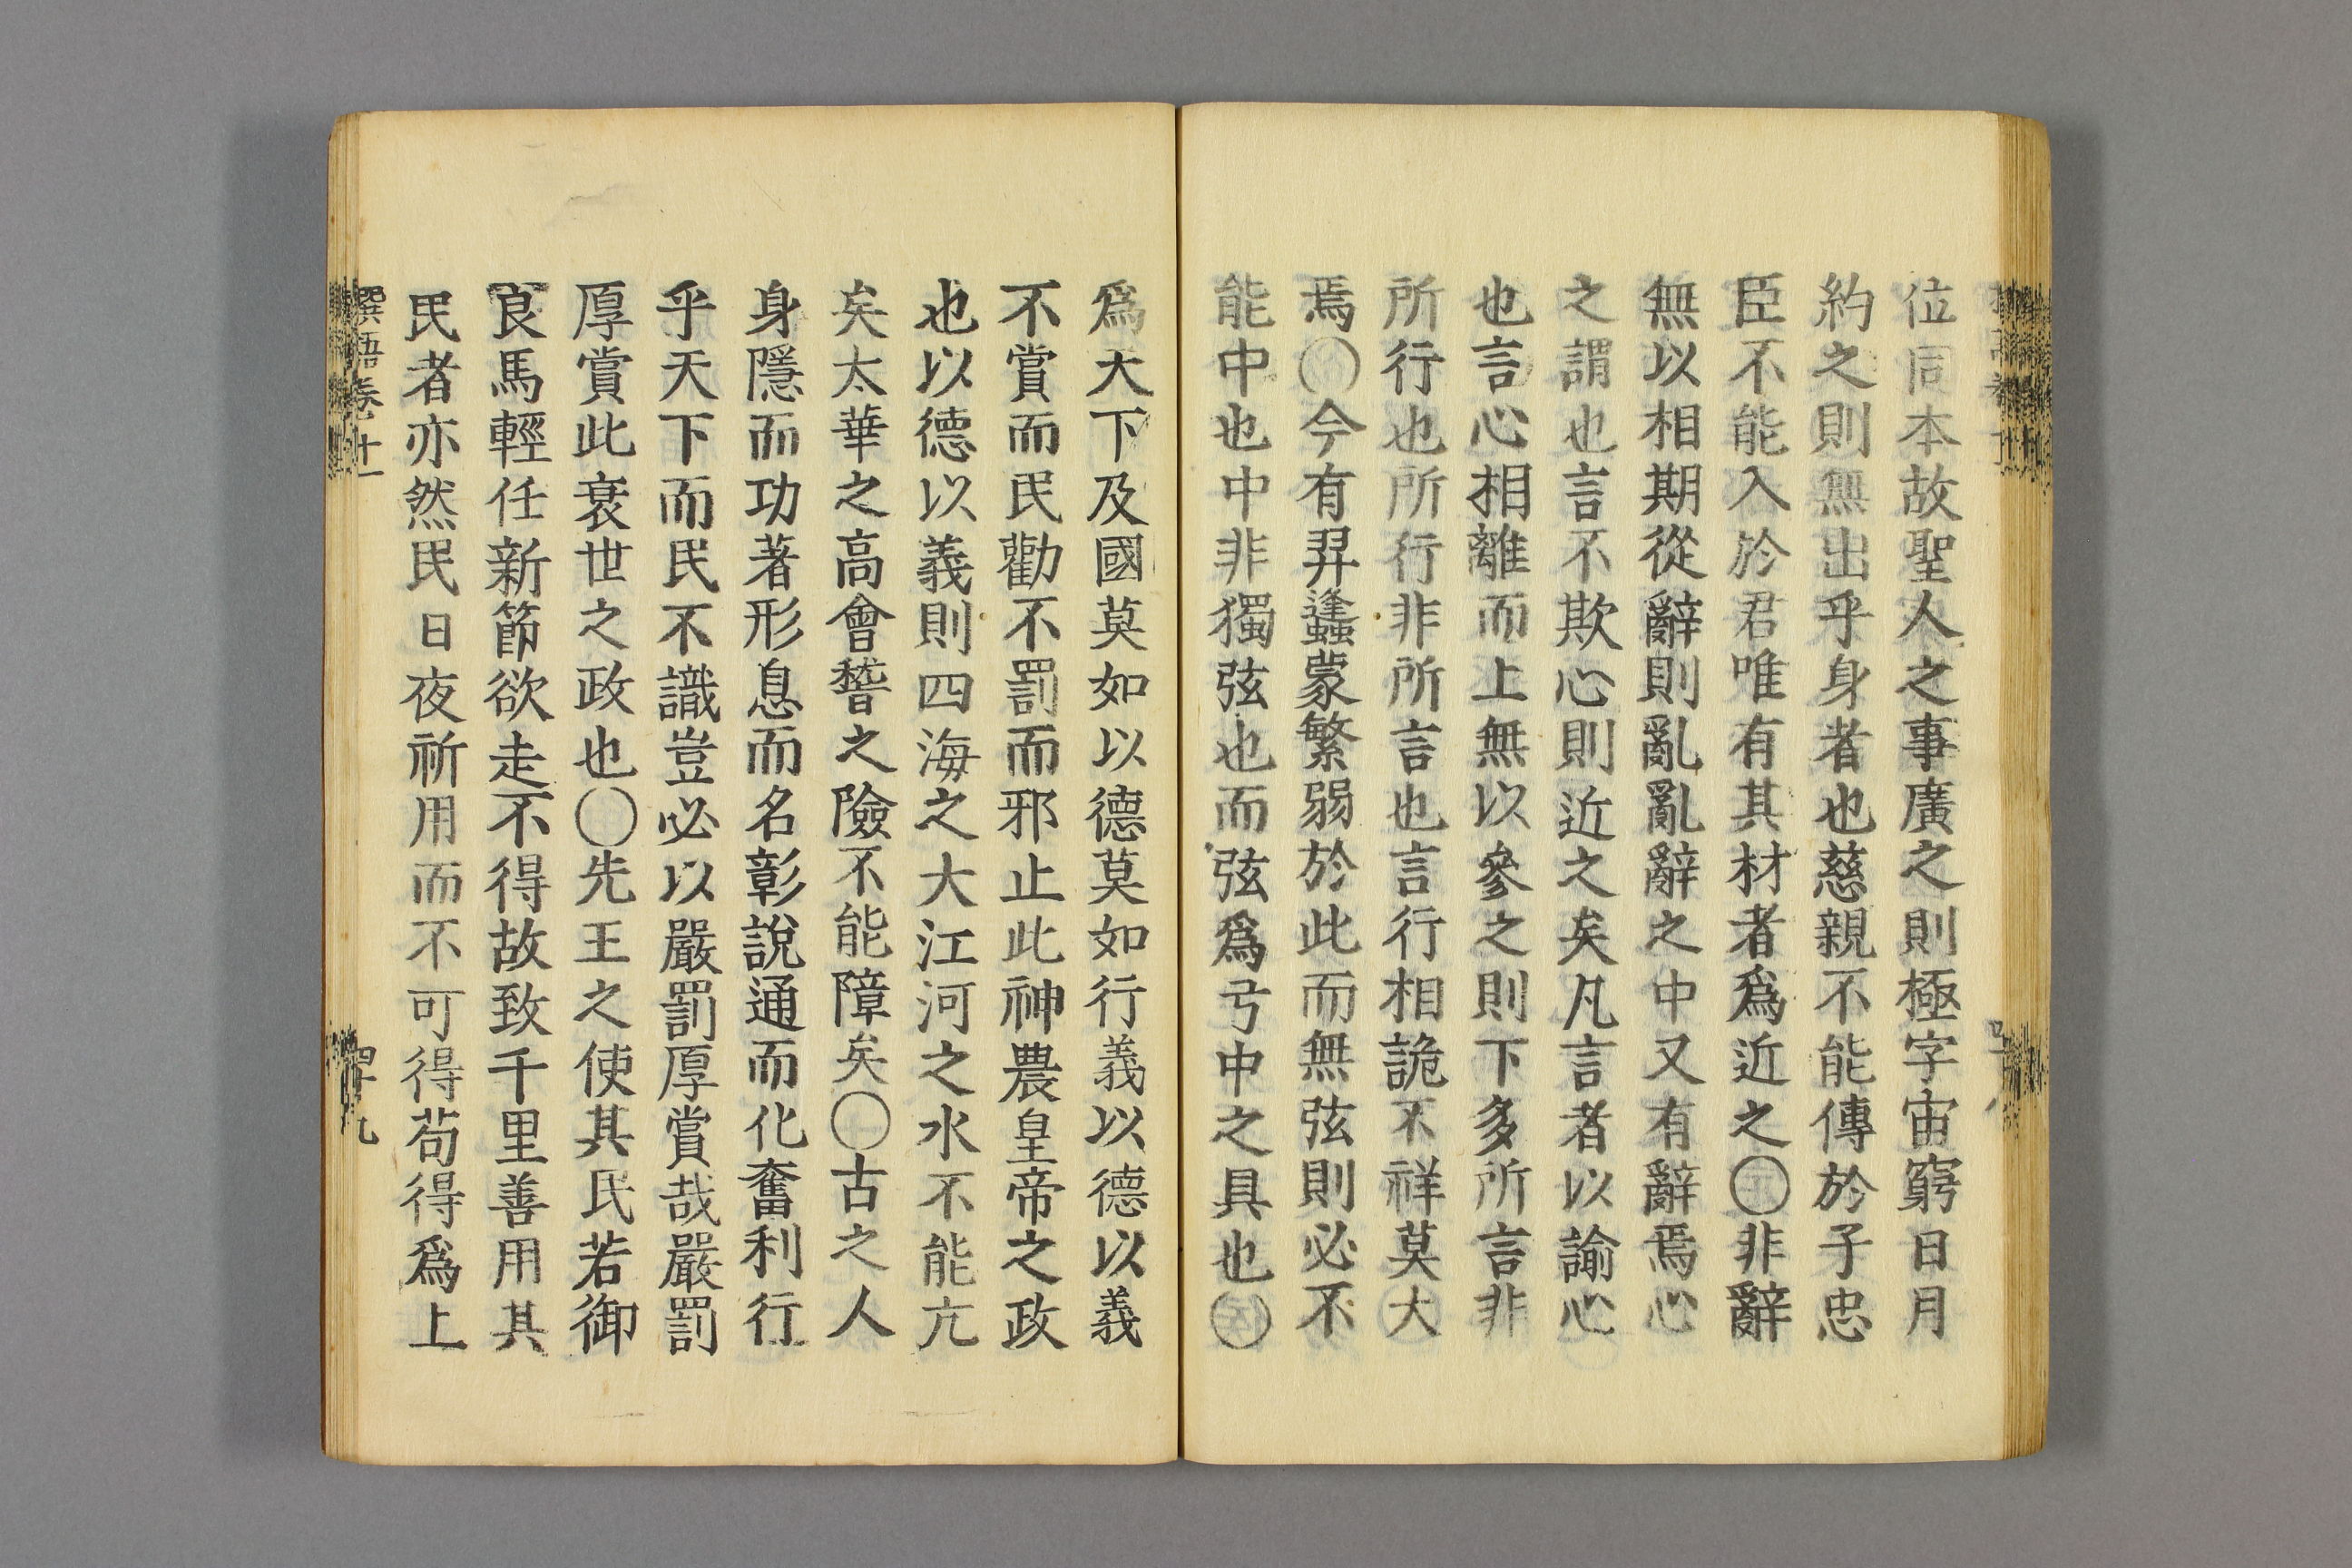 位同本故聖人之事廣之則極字宙窮日月
約之則無出乎身者也慈親不能傳於子忠
臣不能入於君唯有其材者爲近之〇非辭
無以相期從辭則亂亂辭之中又有辭焉心
之謂也言不欺心則近之矣凡言者以諭心
也言心相離而上無以參之則下多所言非
所行也所行非所言也言行相詭不祥莫大
焉〇今有羿蠭蒙繁弱於此而無弦則必不
能中也中非獨弦也而弦爲弓中之具也〇
爲天下及國莫如以德莫如行義以德以義
不賞而民勸不罰而邪止此神農皇帝之政
也以德以義則四海之大江河之水不能亢
矣太華之高會嵇之險不能障矣〇古之人
身隱而功著形息而名彰說通而化奮利行
乎天下而民不識豈必以嚴罰厚賞哉嚴罰
厚賞此衰世之政也〇先王之使其民若御
良馬輕任新節欲走不得故致千里善用其
民者亦然民日夜祈用而不可得茍得爲上
撰語卷十一
四十九